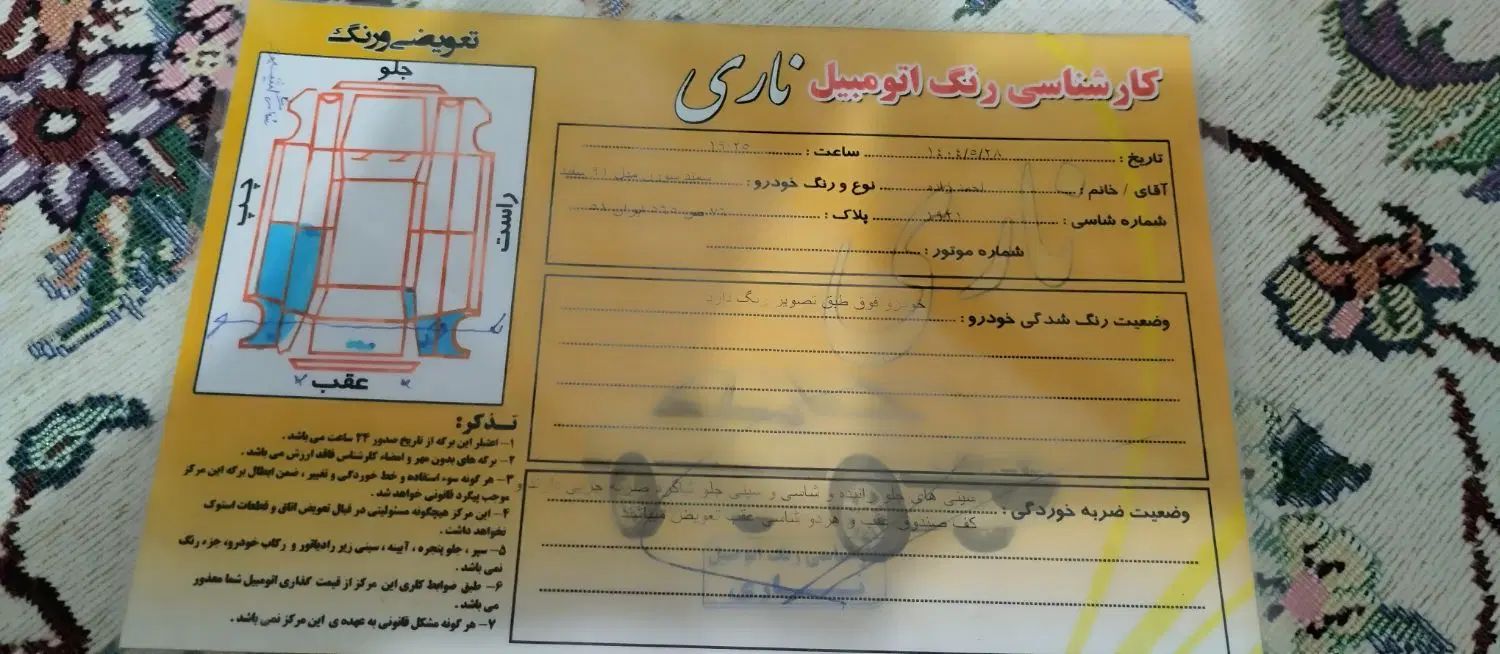 کارشناسی رنگ اتومبیل ناری
تاریخ : ۱۴۰۴/۵/۲۸ ساعت : ۱۹:۲۵
آقای / خانم : نوع و رنگ خودرو : سمند سورن مدل ۹۱ سفید
شماره شاسی : پلاک :
شماره موتور :
وضعیت رنگ شدگی خودرو : خودرو فوق طبق تصویر رنگ دارد
وضعیت ضربه خوردگی : سینی های جلو راننده و شاسی و سینی جلو شاگرد ضربه جزیی دارند و
کف صندوق عقب و هر دو شاسی عقب تعویض میباشد
تعویضی و رنگ
جلو
چپ
راست
عقب
تـذکر:
۱- اعتبار این برگه از تاریخ صدور ۲۴ ساعت می باشد .
۲- برگه های بدون مهر و امضاء کارشناس فاقد ارزش می باشد .
۳- هر گونه سوء استفاده و خط خوردگی و تغییر ، ضمن ابطال برگه این مرکز
موجب پیگرد قانونی خواهد شد .
۴- این مرکز هیچگونه مسئولیتی در قبال تعویض اتاق و قطعات استوک
نخواهد داشت .
۵- سپر ، جلو پنجره ، آیینه ، سینی زیر رادیاتور و رکاب خودرو، جزء رنگ
نمی باشد .
۶- طبق ضوابط کاری این مرکز از قیمت گذاری اتومبیل شما معذور
می باشد .
۷- هر گونه مشکل قانونی به عهده ی این مرکز نمی باشد .